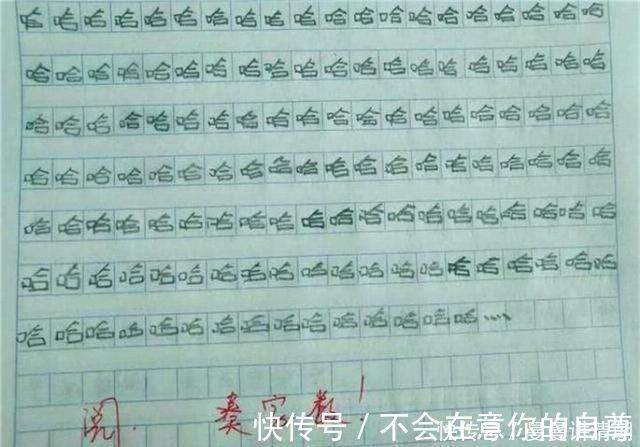 哈哈哈哈哈哈哈哈哈哈哈哈哈哈哈哈哈哈哈哈
哈哈哈哈哈哈哈哈哈哈哈哈哈哈哈哈哈哈哈哈
哈哈哈哈哈哈哈哈哈哈哈哈哈哈哈哈哈哈哈哈
哈哈哈哈哈哈哈哈哈哈哈哈哈哈哈哈哈哈哈哈
哈哈哈哈哈哈哈哈哈哈哈哈哈哈哈哈哈哈哈哈
哈哈哈哈哈哈哈哈哈哈哈哈哈哈哈哈哈哈哈哈
哈哈哈哈哈哈哈哈哈哈哈哈哈哈哈哈……
阅. 凑字数!
快传号 / 不会在意你的自尊
快传号